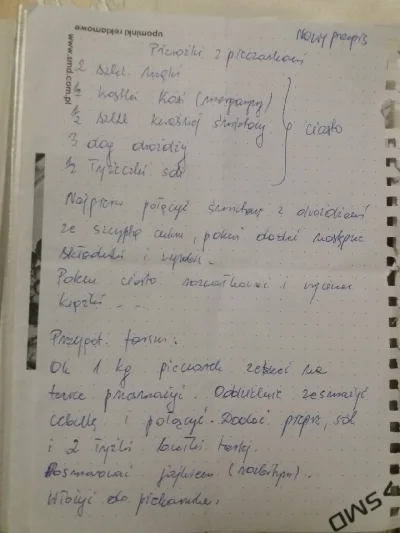 upominki reklamowe
www.smd.com.pl
Nowy przepis
Pierożki z pieczarkami
2 szkl. mąki
½ kostki Kasi (margaryny)
½ szkl kwaśnej śmietany
3 dag drożdży
½ łyżeczki soli
ciasto
Najpierw połączyć śmietanę z drożdżami
ze szczyptą cukru, potem dodać następne
składniki i wyrobić.
Potem ciasto rozwałkować i wycinać
krążki - -
Przygot. farszu.
Ok 1 kg pieczarek zetrzeć na
tarce przesmażyć. Oddzielnie zesmażyć
cebulkę i połączyć. Dodać pieprz, sól
i 2 łyżki bułki tartej.
Posmarować jajkiem (rozbitym).
Włożyć do piekarnika.
SMD